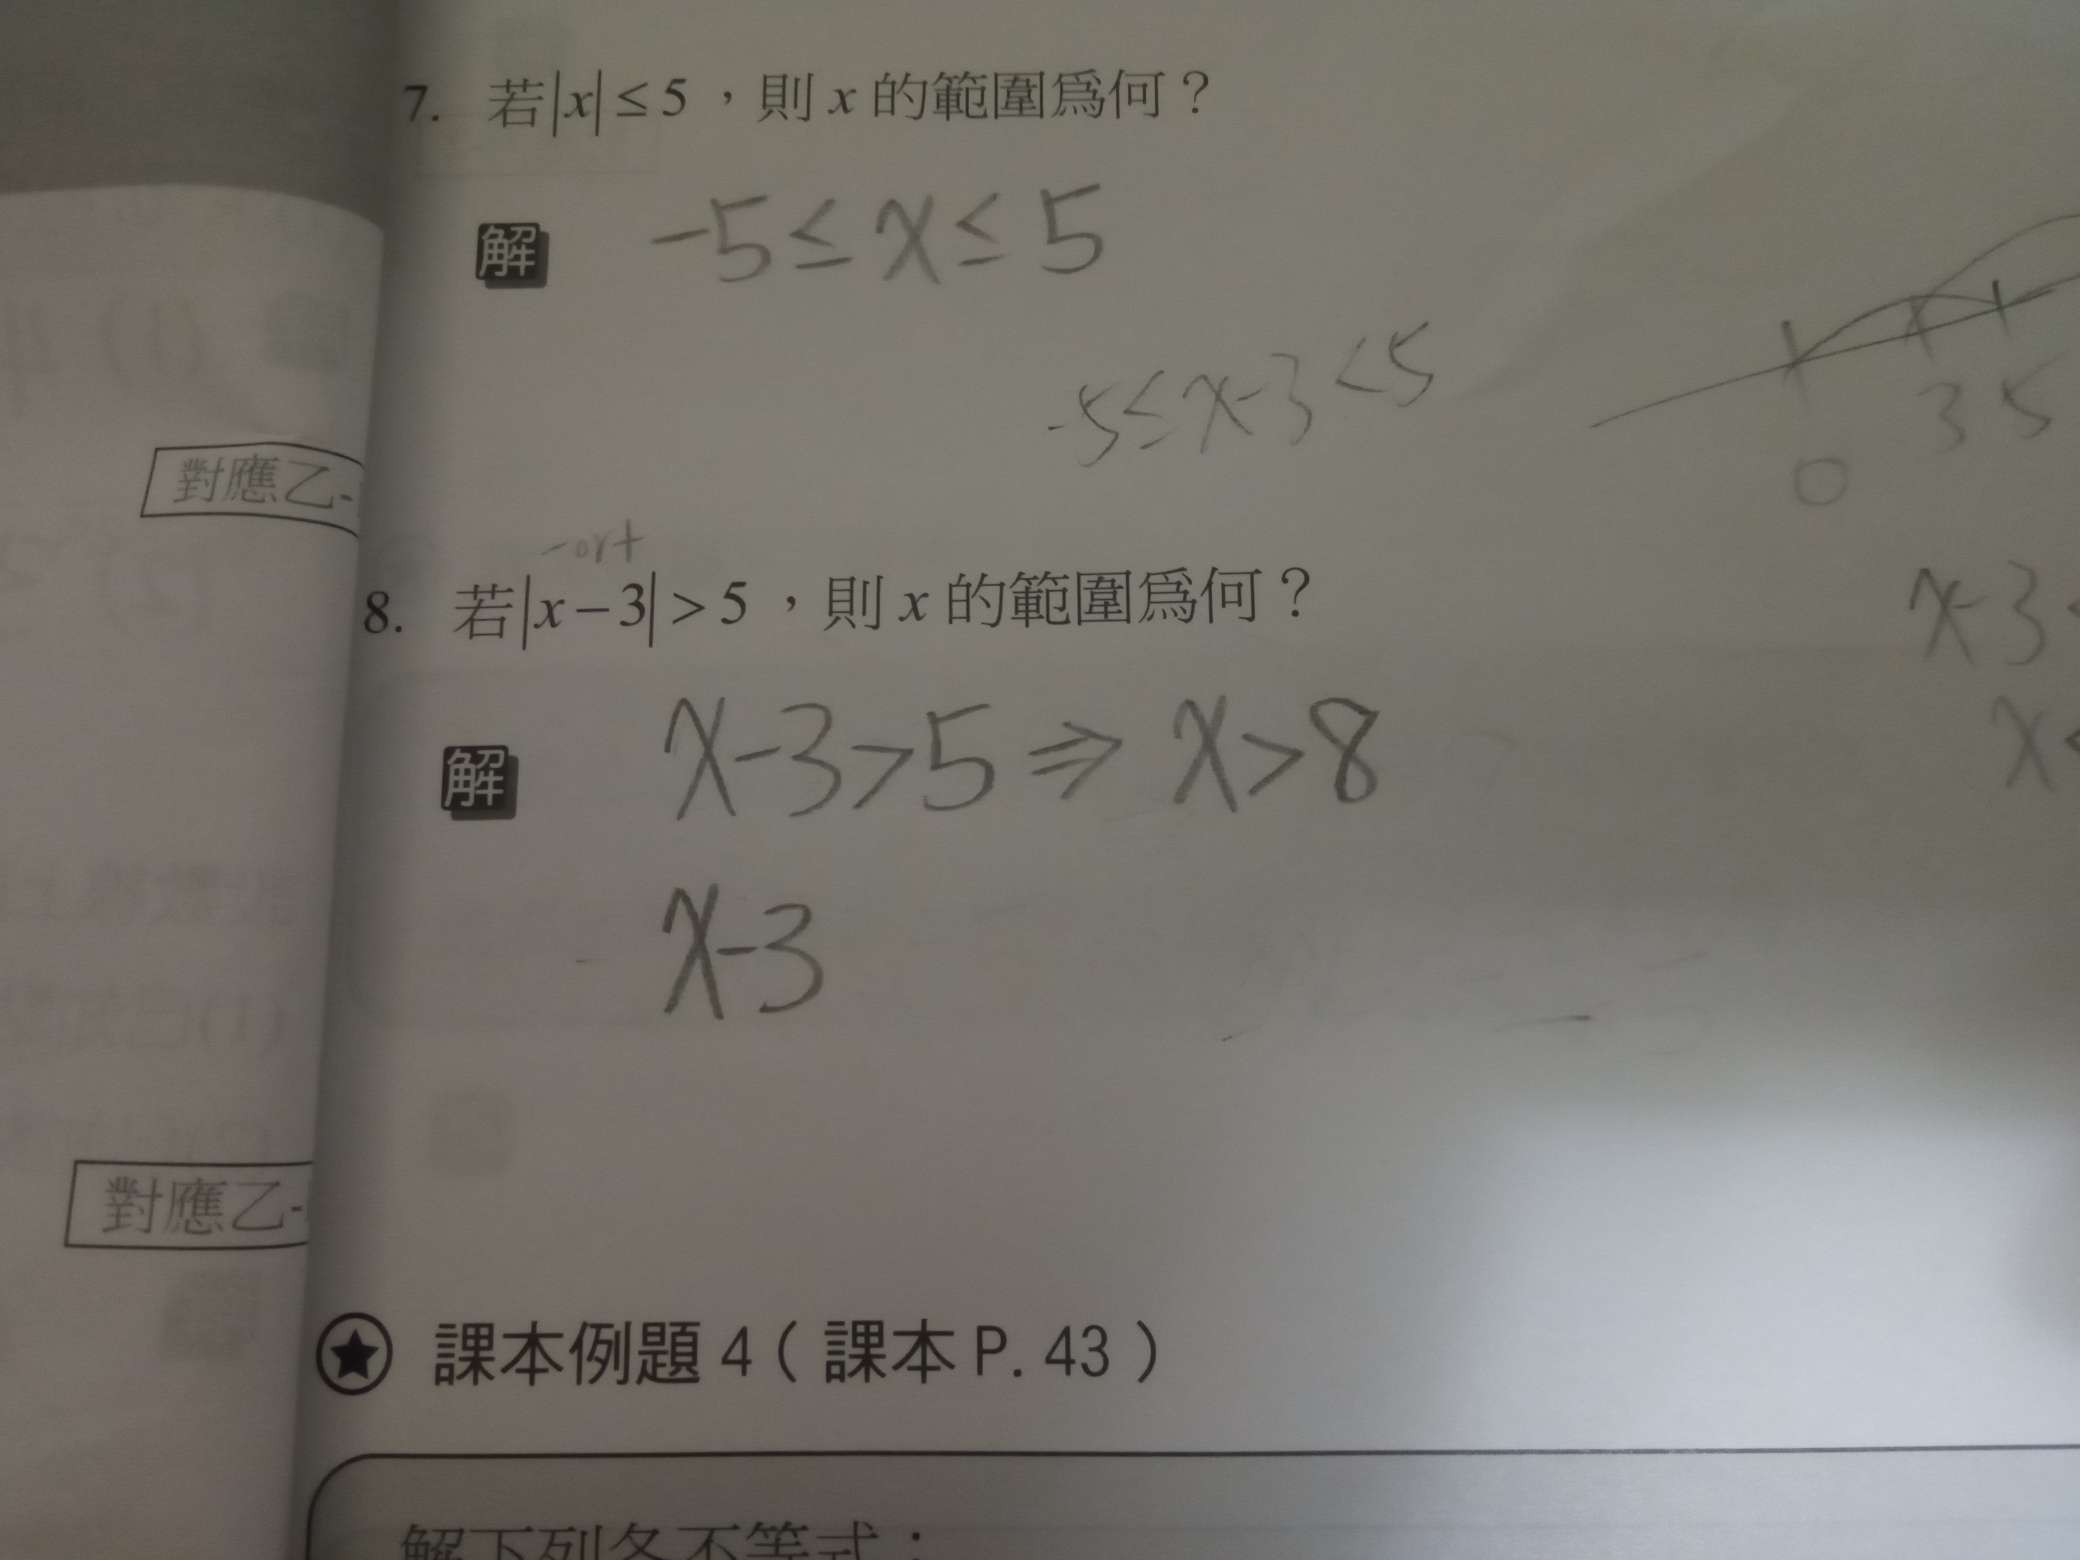 7. 若|x| ≤ 5，則 x 的範圍為何？
解 -5 ≤ x ≤ 5
-5 ≤ x-3 < 5
0 3 5
對應乙-
-or+
8. 若|x-3| > 5，則 x 的範圍為何？
x-3 <
解 x-3>5 ⇒ x>8
x <
x-3
對應乙-
★ 課本例題 4（課本 P. 43）
解下列各不等式：